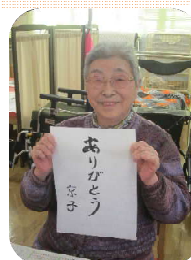 ありがとう
京子